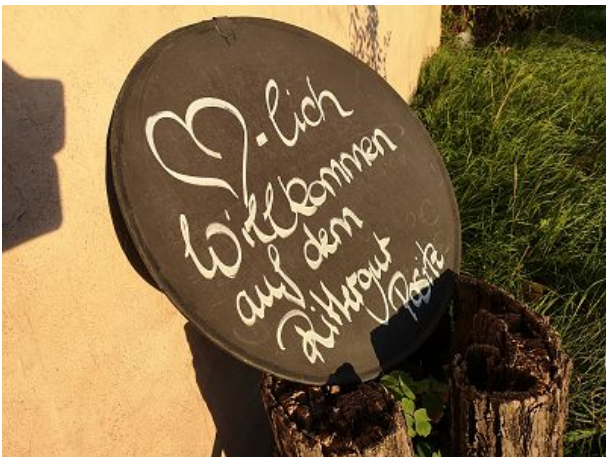 ♥-lich
Willkommen
auf dem
Rittergut
Positz